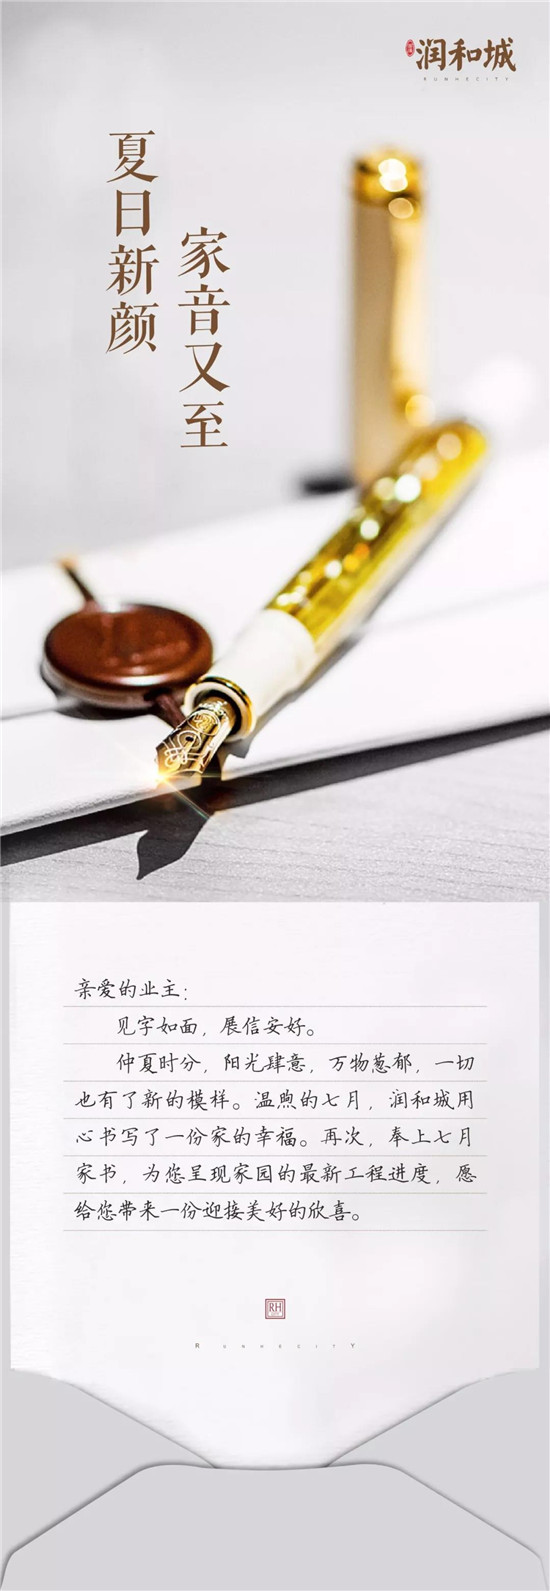 润和城
RUNHECITY
夏日新颜
家音又至
亲爱的业主：
见字如面，展信安好。
仲夏时分，阳光肆意，万物葱郁，一切
也有了新的模样。温煦的七月，润和城用
心书写了一份家的幸福。再次，奉上七月
家书，为您呈现家园的最新工程进度，愿
给您带来一份迎接美好的欣喜。
RH
RUNHECITY